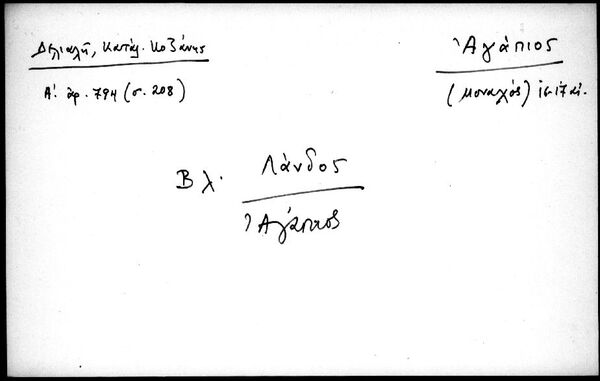 Δελιαλῆ, Κατάλ. Κοζάνης
Α΄. ἀρ. 794 (σ. 208)
Ἀγάπιος
(μοναχός) 16-17 αἰ.
Βλ. Λάνδος
Ἀγάπιος